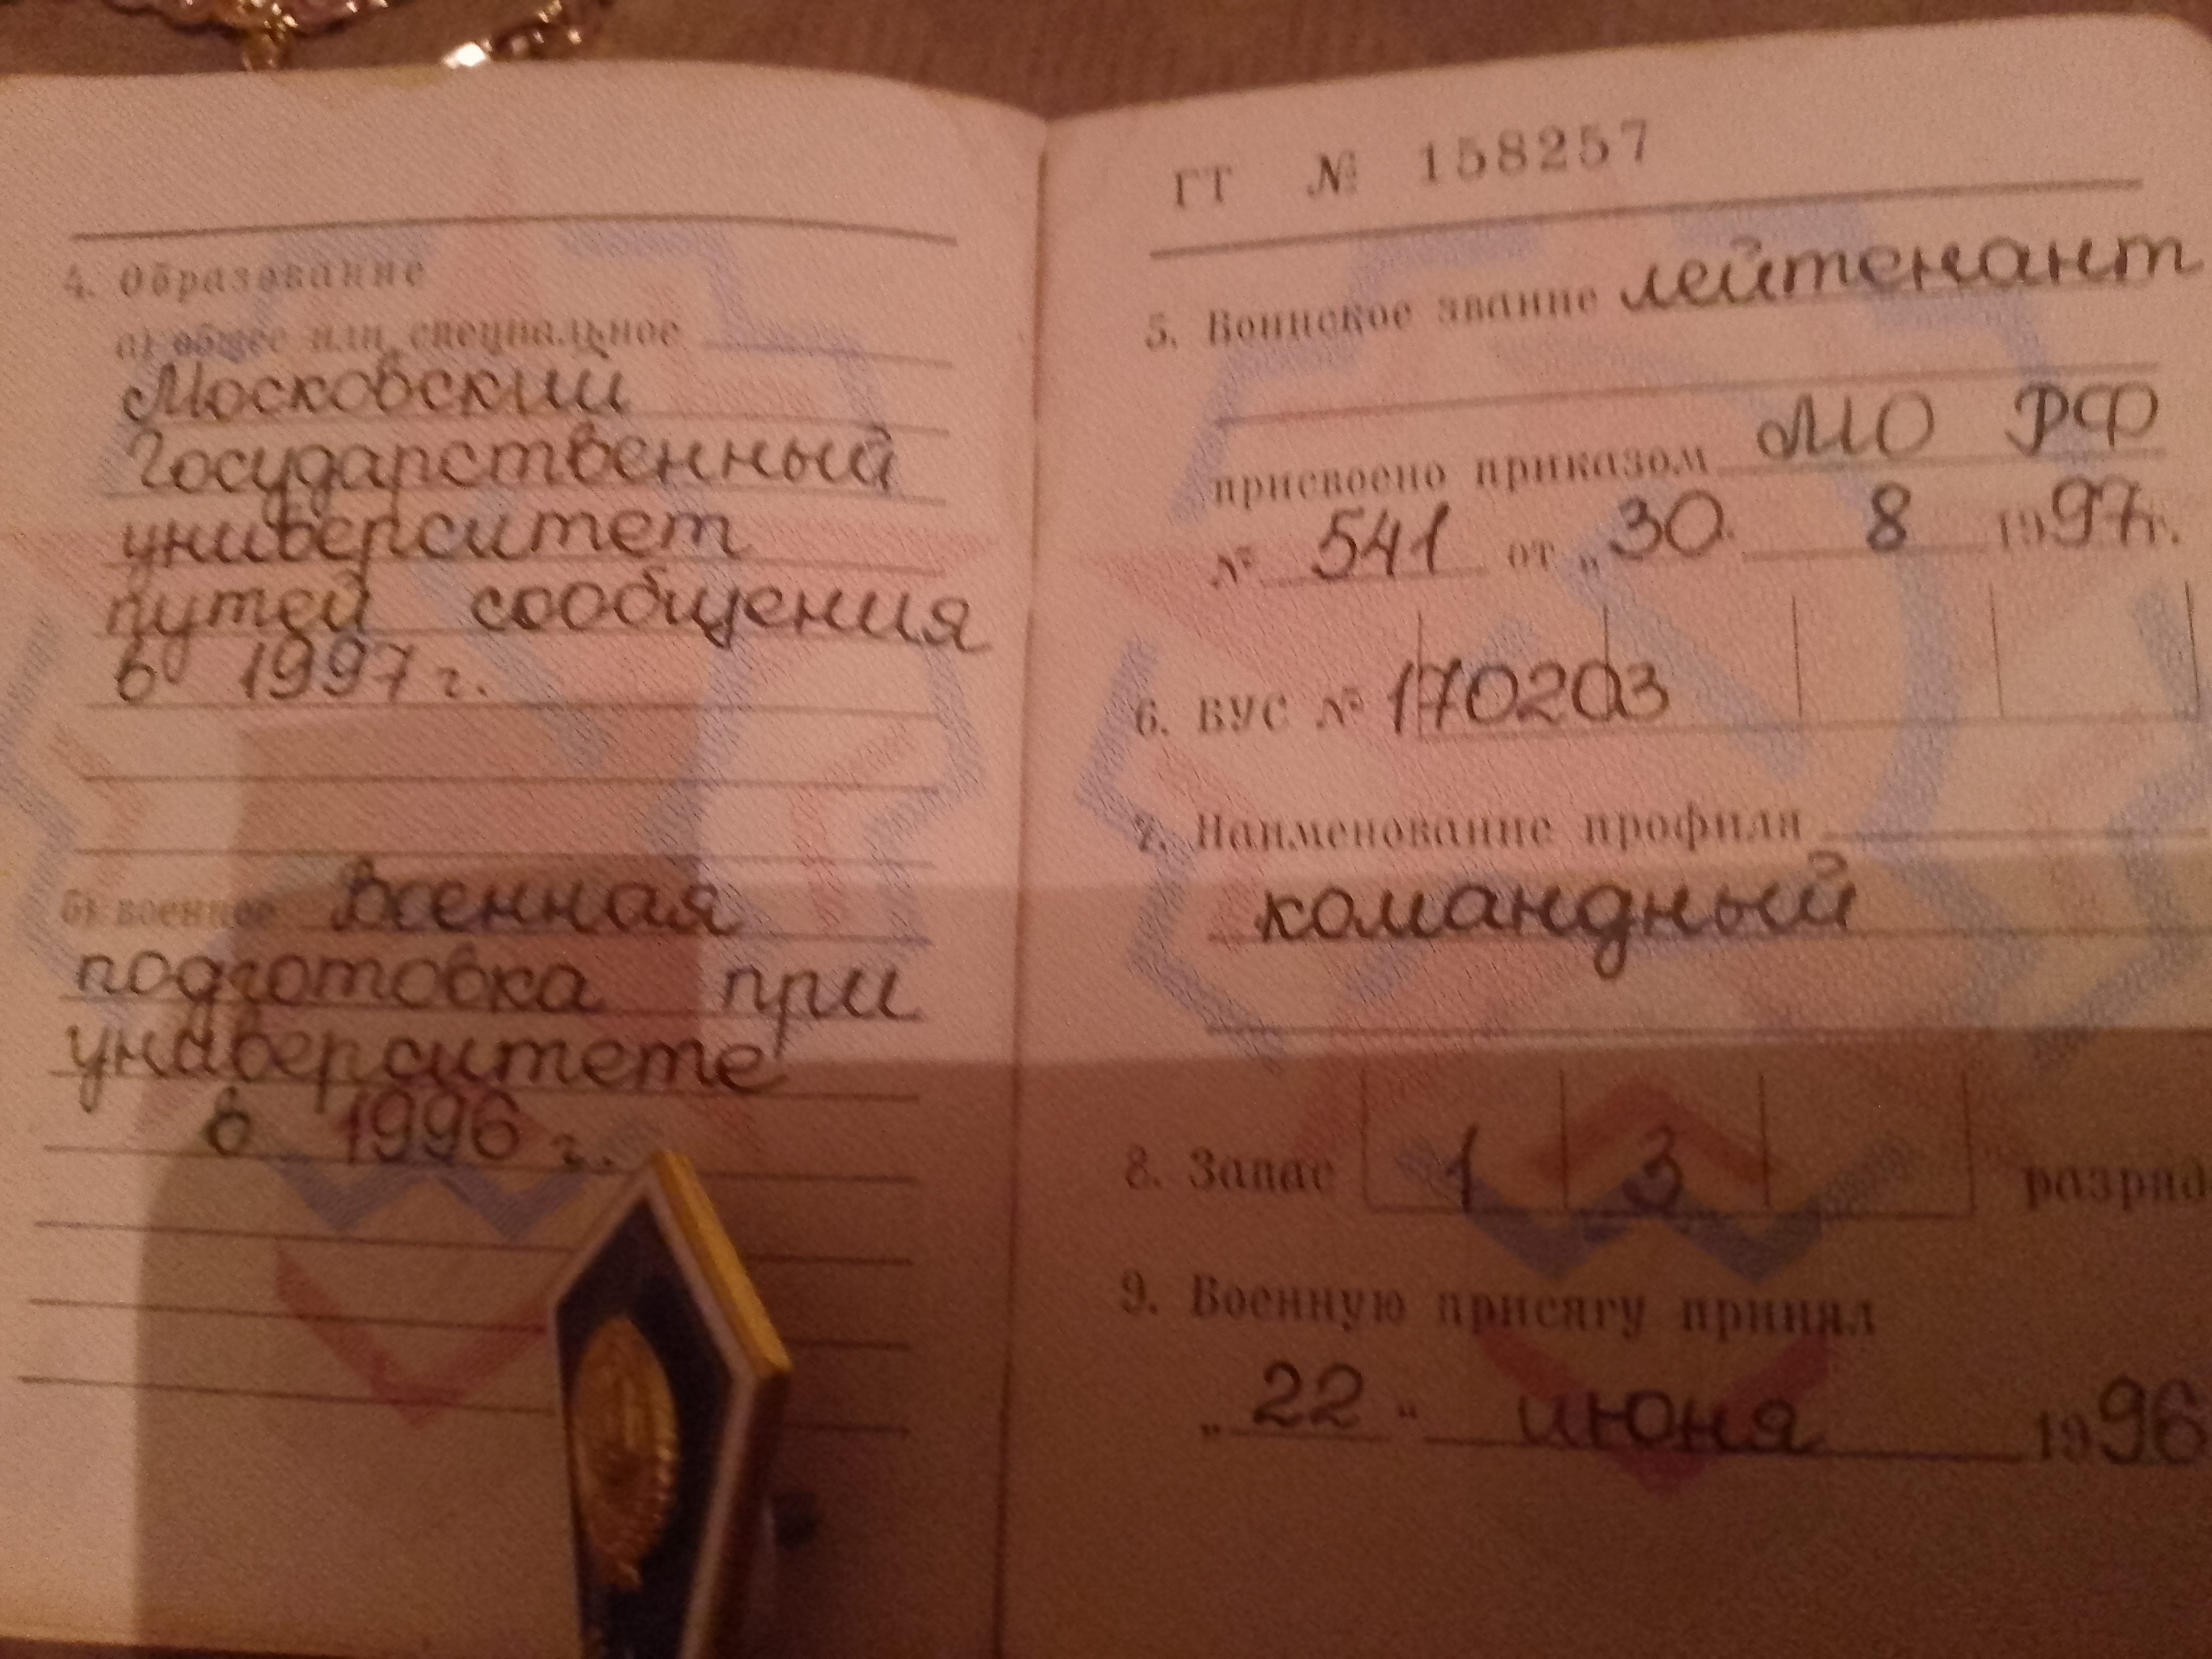 4. Образование
а) общее или специальное
Московский
Государственный
университет
путей сообщения
в 1997 г.
б) военное Военная
подготовка при
университете
в 1996 г.
ГТ № 158257
5. Воинское звание лейтенант
присвоено приказом МО РФ
№ 541 от „30 8 1997г.
6. ВУС № 170203
7. Наименование профиля
командный
8. Запас 1 3 разряд
9. Военную присягу принял
„22“ июня 1996